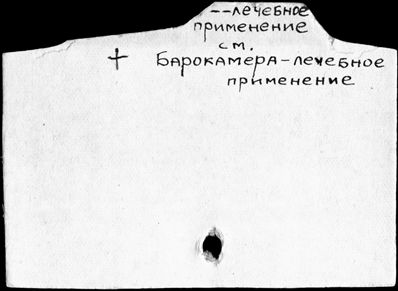 --лечебное
применение
см.
+ Барокамера-лечебное
применение